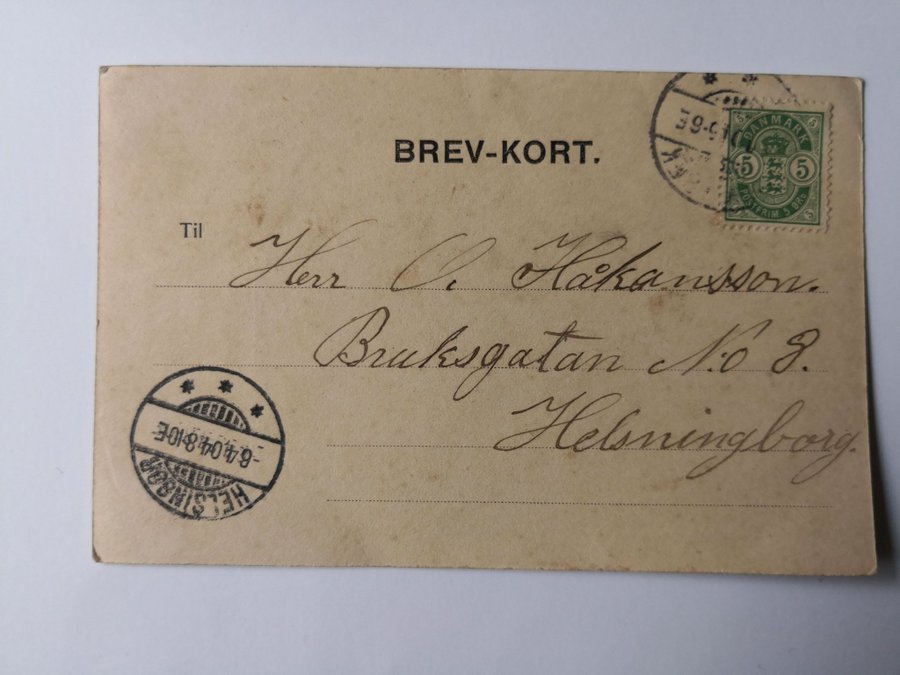 BREV-KORT.
DANMARK
5 5
5 5
POSTFRIM 5 ØRE
Til
Herr O. Håkansson.
Bruksgatan No 8.
Helsningborg.
-6.4.04.8-10E
HELSINGØR